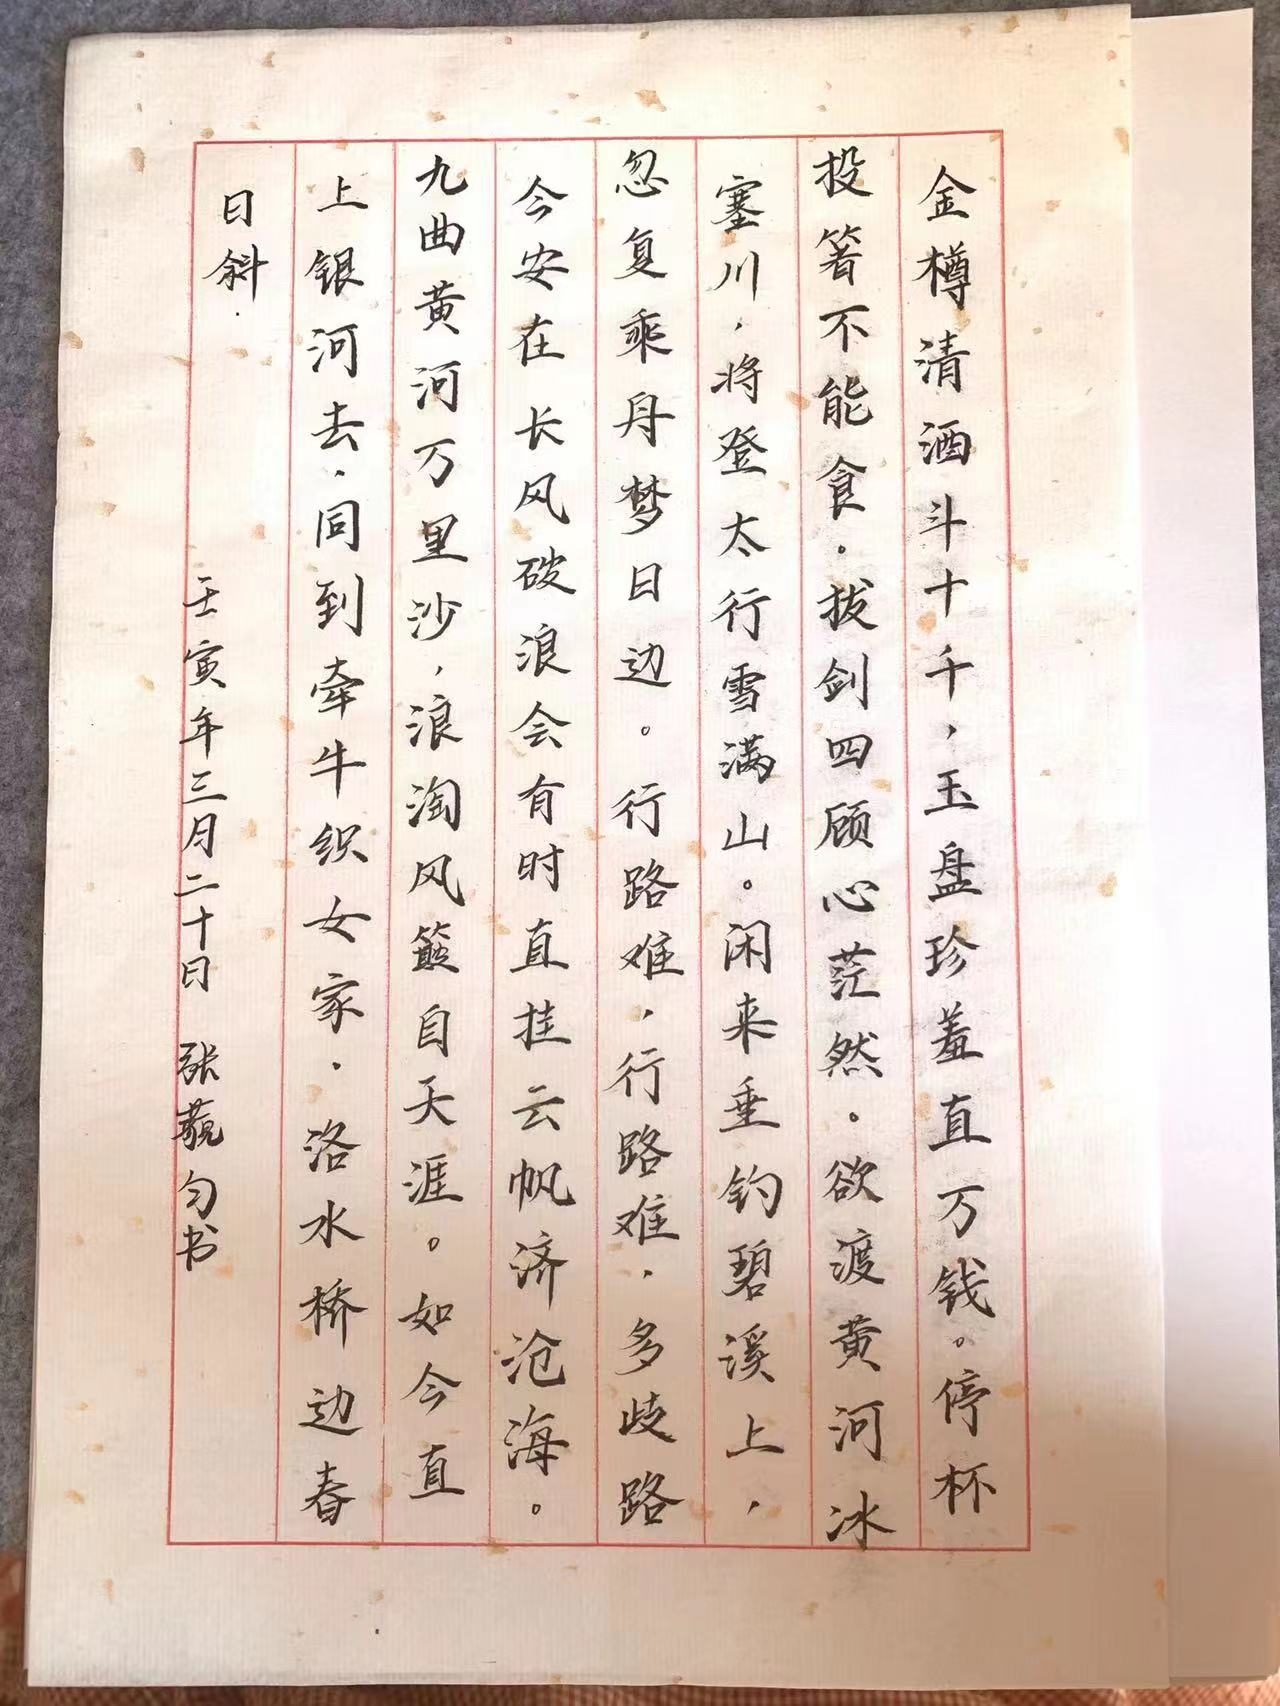 金樽清酒斗十千，玉盘珍羞直万钱。停杯
投箸不能食。拔剑四顾心茫然。欲渡黄河冰
塞川，将登太行雪满山。闲来垂钓碧溪上，
忽复乘舟梦日边。行路难，行路难，多歧路
今安在长风破浪会有时直挂云帆济沧海。
九曲黄河万里沙，浪淘风簸自天涯。如今直
上银河去，同到牵牛织女家。洛水桥边春
日斜.
壬寅年三月二十日 张藐匀书